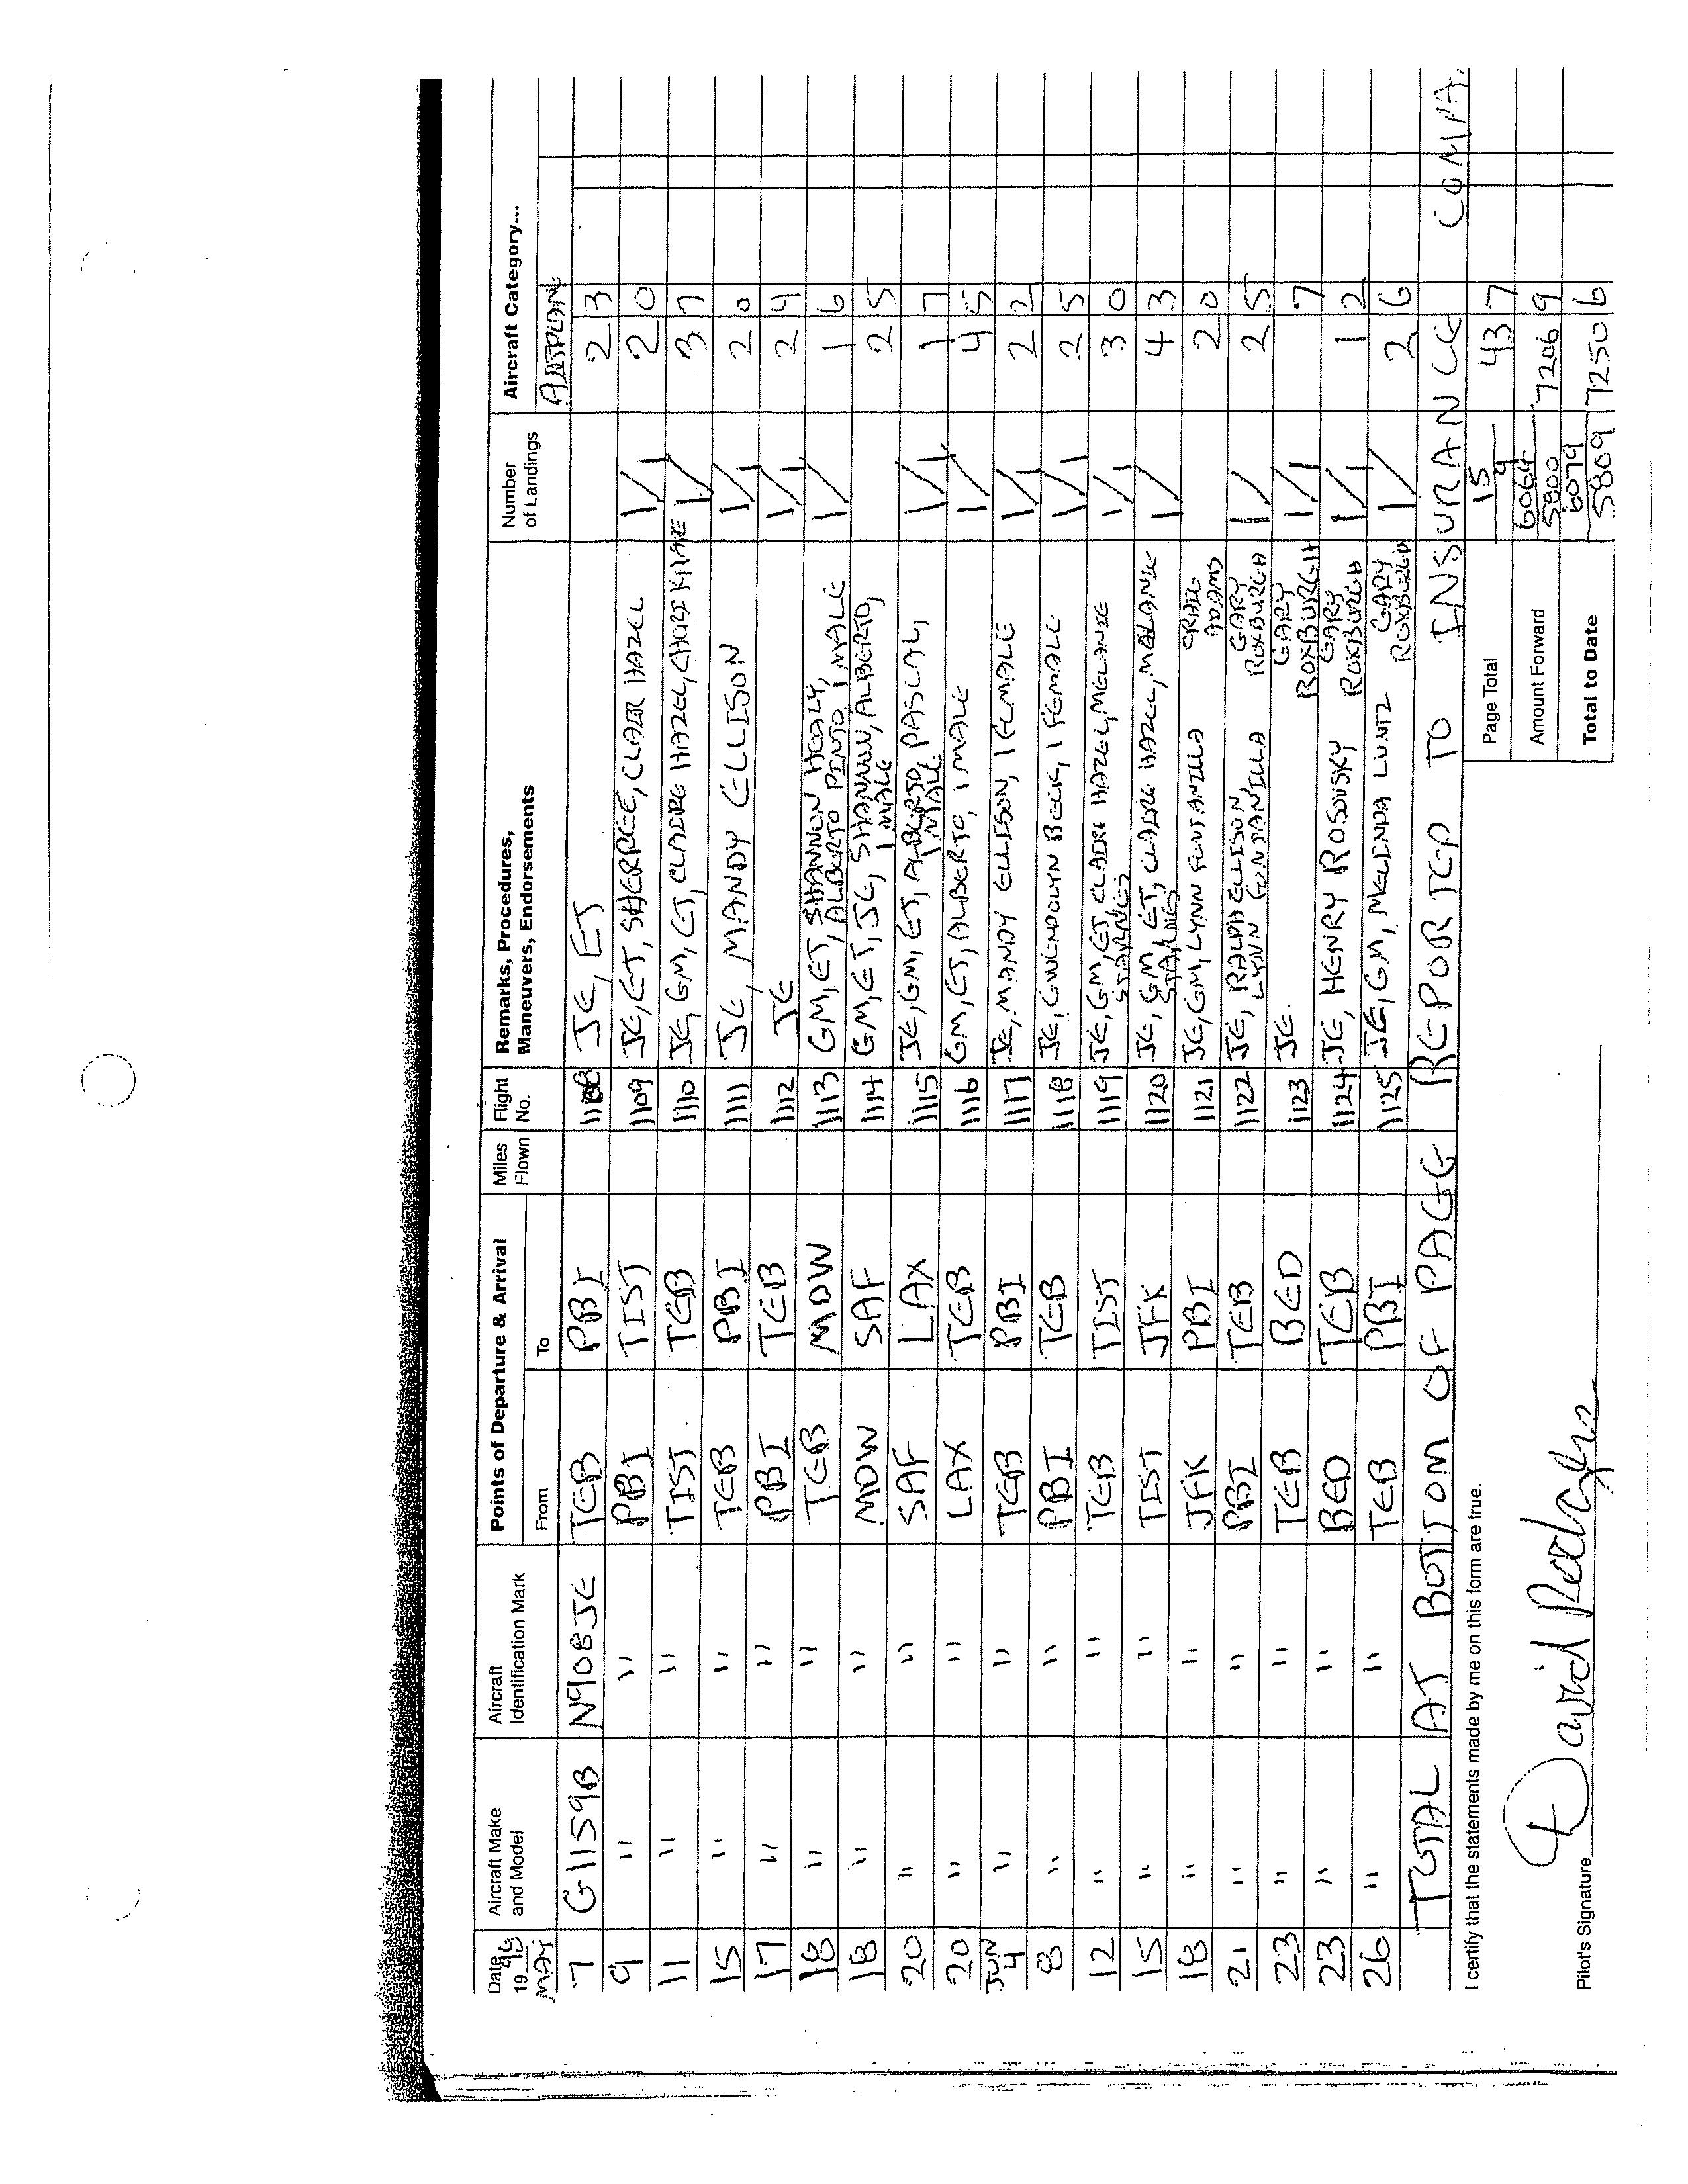 Date 19 98 Aircraft Make and Model Aircraft Identification Mark Points of Departure & Arrival Miles Flown Flight No. Remarks, Procedures, Maneuvers, Endorsements Number of Landings Aircraft Category...
MAY From To AIRPLANE
7 G1159B N908JE TEB PBI 1108 JE, ET 2 3
9 " " PBI TIST 1109 JE, ET, SHERREE, CLAIR HAZEL 1/1 2 0
11 " " TIST TEB 1110 JE, GM, ET, CLAIRE HAZEL, CHRI KHARE 1/ 3 7
15 " " TEB PBI 1111 JE, MANDY ELLISON 1/1 2 0
17 " " PBI TEB 1112 JE 1/1 2 4
18 " " TEB MDW 1113 GM, ET, SHANNON HEALY, ALBERTO PINTO 1 MALE 1/ 1 6
18 " " MDW SAF 1114 GM, ET, JE, SHANNON, ALBERTO, 1 MALE 2 5
20 " " SAF LAX 1115 JE, GM, ET, ALBERTO, PASCAL, 1 MALE 1/1 1 7
20 " " LAX TEB 1116 GM, ET, ALBERTO, 1 MALE 1/ 4 5
JUN 4 " " TEB PBI 1117 JE, MANDY ELLISON, 1 FEMALE 1/1 2 2
8 " " PBI TEB 1118 JE, GWENDOLYN BECK, 1 FEMALE 1/1 2 5
12 " " TEB TIST 1119 JE, GM, ET, CLAIRE HAZEL, MELANIE STARNES 1/1 3 0
15 " " TIST JFK 1120 JE, GM, ET, CLAIRE HAZEL, MELANIE STARNES 1/ 4 3
18 " " JFK PBI 1121 JE, GM, LYNN FONTANILLA CRAIG ADAMS 2 0
21 " " PBI TEB 1122 JE, RALPH ELLISON, LYNN FONTANILLA GARY ROXBURGH 1/ 2 5
23 " " TEB BED 1123 JE. GARY ROXBURGH 1/1 7
23 " " BED TEB 1124 JE, HENRY ROSOVSKY GARY ROXBURGH 1/1 1 2
26 " " TEB PBI 1125 JE, GM, MELINDA LUNTZ GARY ROXBURGH 1/ 2 6
TOTAL AT BOTTOM OF PAGE REPORTED TO INSURANCE COMPA
I certify that the statements made by me on this form are true. Page Total 15 9 43 7
Amount Forward 6064 5800 7206 9
Pilot's Signature David Rodgers Total to Date 6079 5809 7250 6